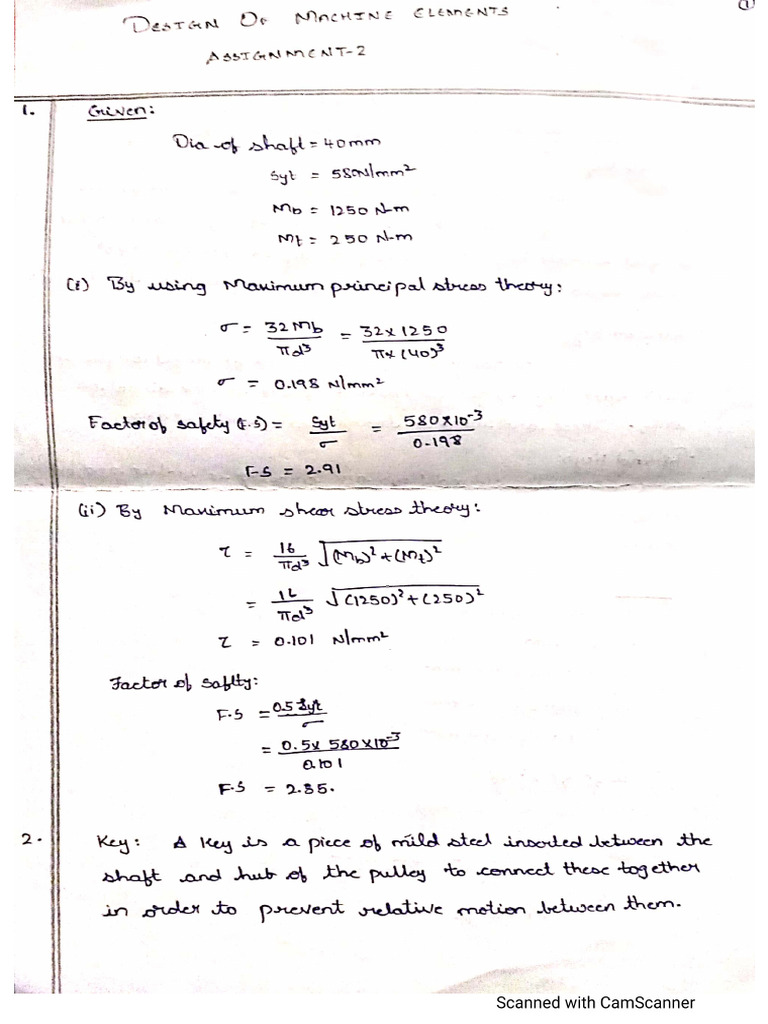 ①
DESIGN OF MACHINE ELEMENTS
ASSIGNMENT-2
1. Given:
Dia of shaft = 40mm
Syt = 580N/mm²
Mb = 1250 N-m
Mt = 250 N-m
(i) By using Maximum principal stress theory:
σ = 32Mb/πd³ = 32×1250/π×(40)³
σ = 0.198 N/mm²
Factor of safety (F.S) = Syt/σ = 580×10⁻³/0.198
F-S = 2.91
(ii) By Maximum shear stress theory:
τ = 16/πd³ √(Mb)²+(Mt)²
= 16/πd³ √(1250)²+(250)²
τ = 0.101 N/mm²
Factor of saflty:
F.S = 0.5 Syt/σ
= 0.5× 580×10⁻³/0.101
F.S = 2.85.
2. Key: A Key is a piece of mild steel inserted between the
shaft and hub of the pulley to connect these together
in order to prevent relative motion between them.
Scanned with CamScanner